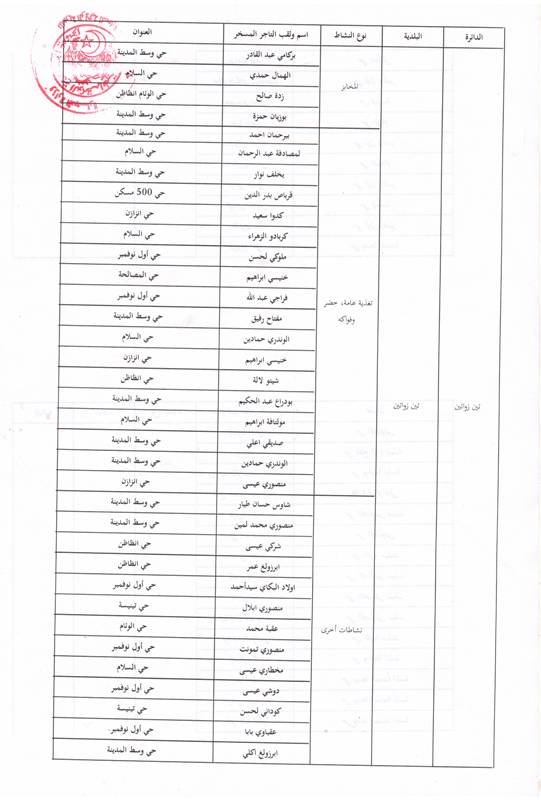 الدائرة البلدية نوع النشاط اسم ولقب التاجر المسخر العنوان
تين زواتين تين زواتين
المخابز
بركامي عبد القادر حي وسط المدينة
الهمال حمدي حي السلام
زدة صالح حي الوئام انظاظن
بوزيان حمزة حي وسط المدينة
تغذية عامة، خضر
وفواكه
بيرحمان احمد حي وسط المدينة
لمصادفة عبد الرحمان حي السلام
يخلف نوار حي وسط المدينة
قرباص بدر الدين حي 500 مسكن
كدوا سعيد حي انزازن
كربادو الزهراء حي السلام
ملوكي لحسن حي أول نوفمبر
ختيسي ابراهيم حي المصالحة
قراجي عبد الله حي أول نوفمبر
مفتاح رفيق حي وسط المدينة
الوندري حمادين حي السلام
ختيسي ابراهيم حي انزازن
شيتو لالة حي انظاظن
بودراع عبد الحكيم حي وسط المدينة
مولتافة ابراهيم حي السلام
صديقي اعلي حي وسط المدينة
الوندري حمادين حي وسط المدينة
منصوري عيسى حي انزازن
نشاطات أخرى
شاوس حسان طيار حي وسط المدينة
منصوري محمد لمين حي وسط المدينة
شركي عيسى حي انظاظن
ابرزولغ عمر حي انظاظن
اولاد البكاي سيدأحمد حي أول نوفمبر
منصوري ابلال حي تينيسة
عقبة محمد حي الوئام
منصوري تمونت حي أول نوفمبر
مخطاري عيسى حي السلام
دوشي عيسى حي أول نوفمبر
كوداني لحسن حي تينيسة
عقباوي بابا حي أول نوفمبر
ابرزولغ اكلي حي وسط المدينة